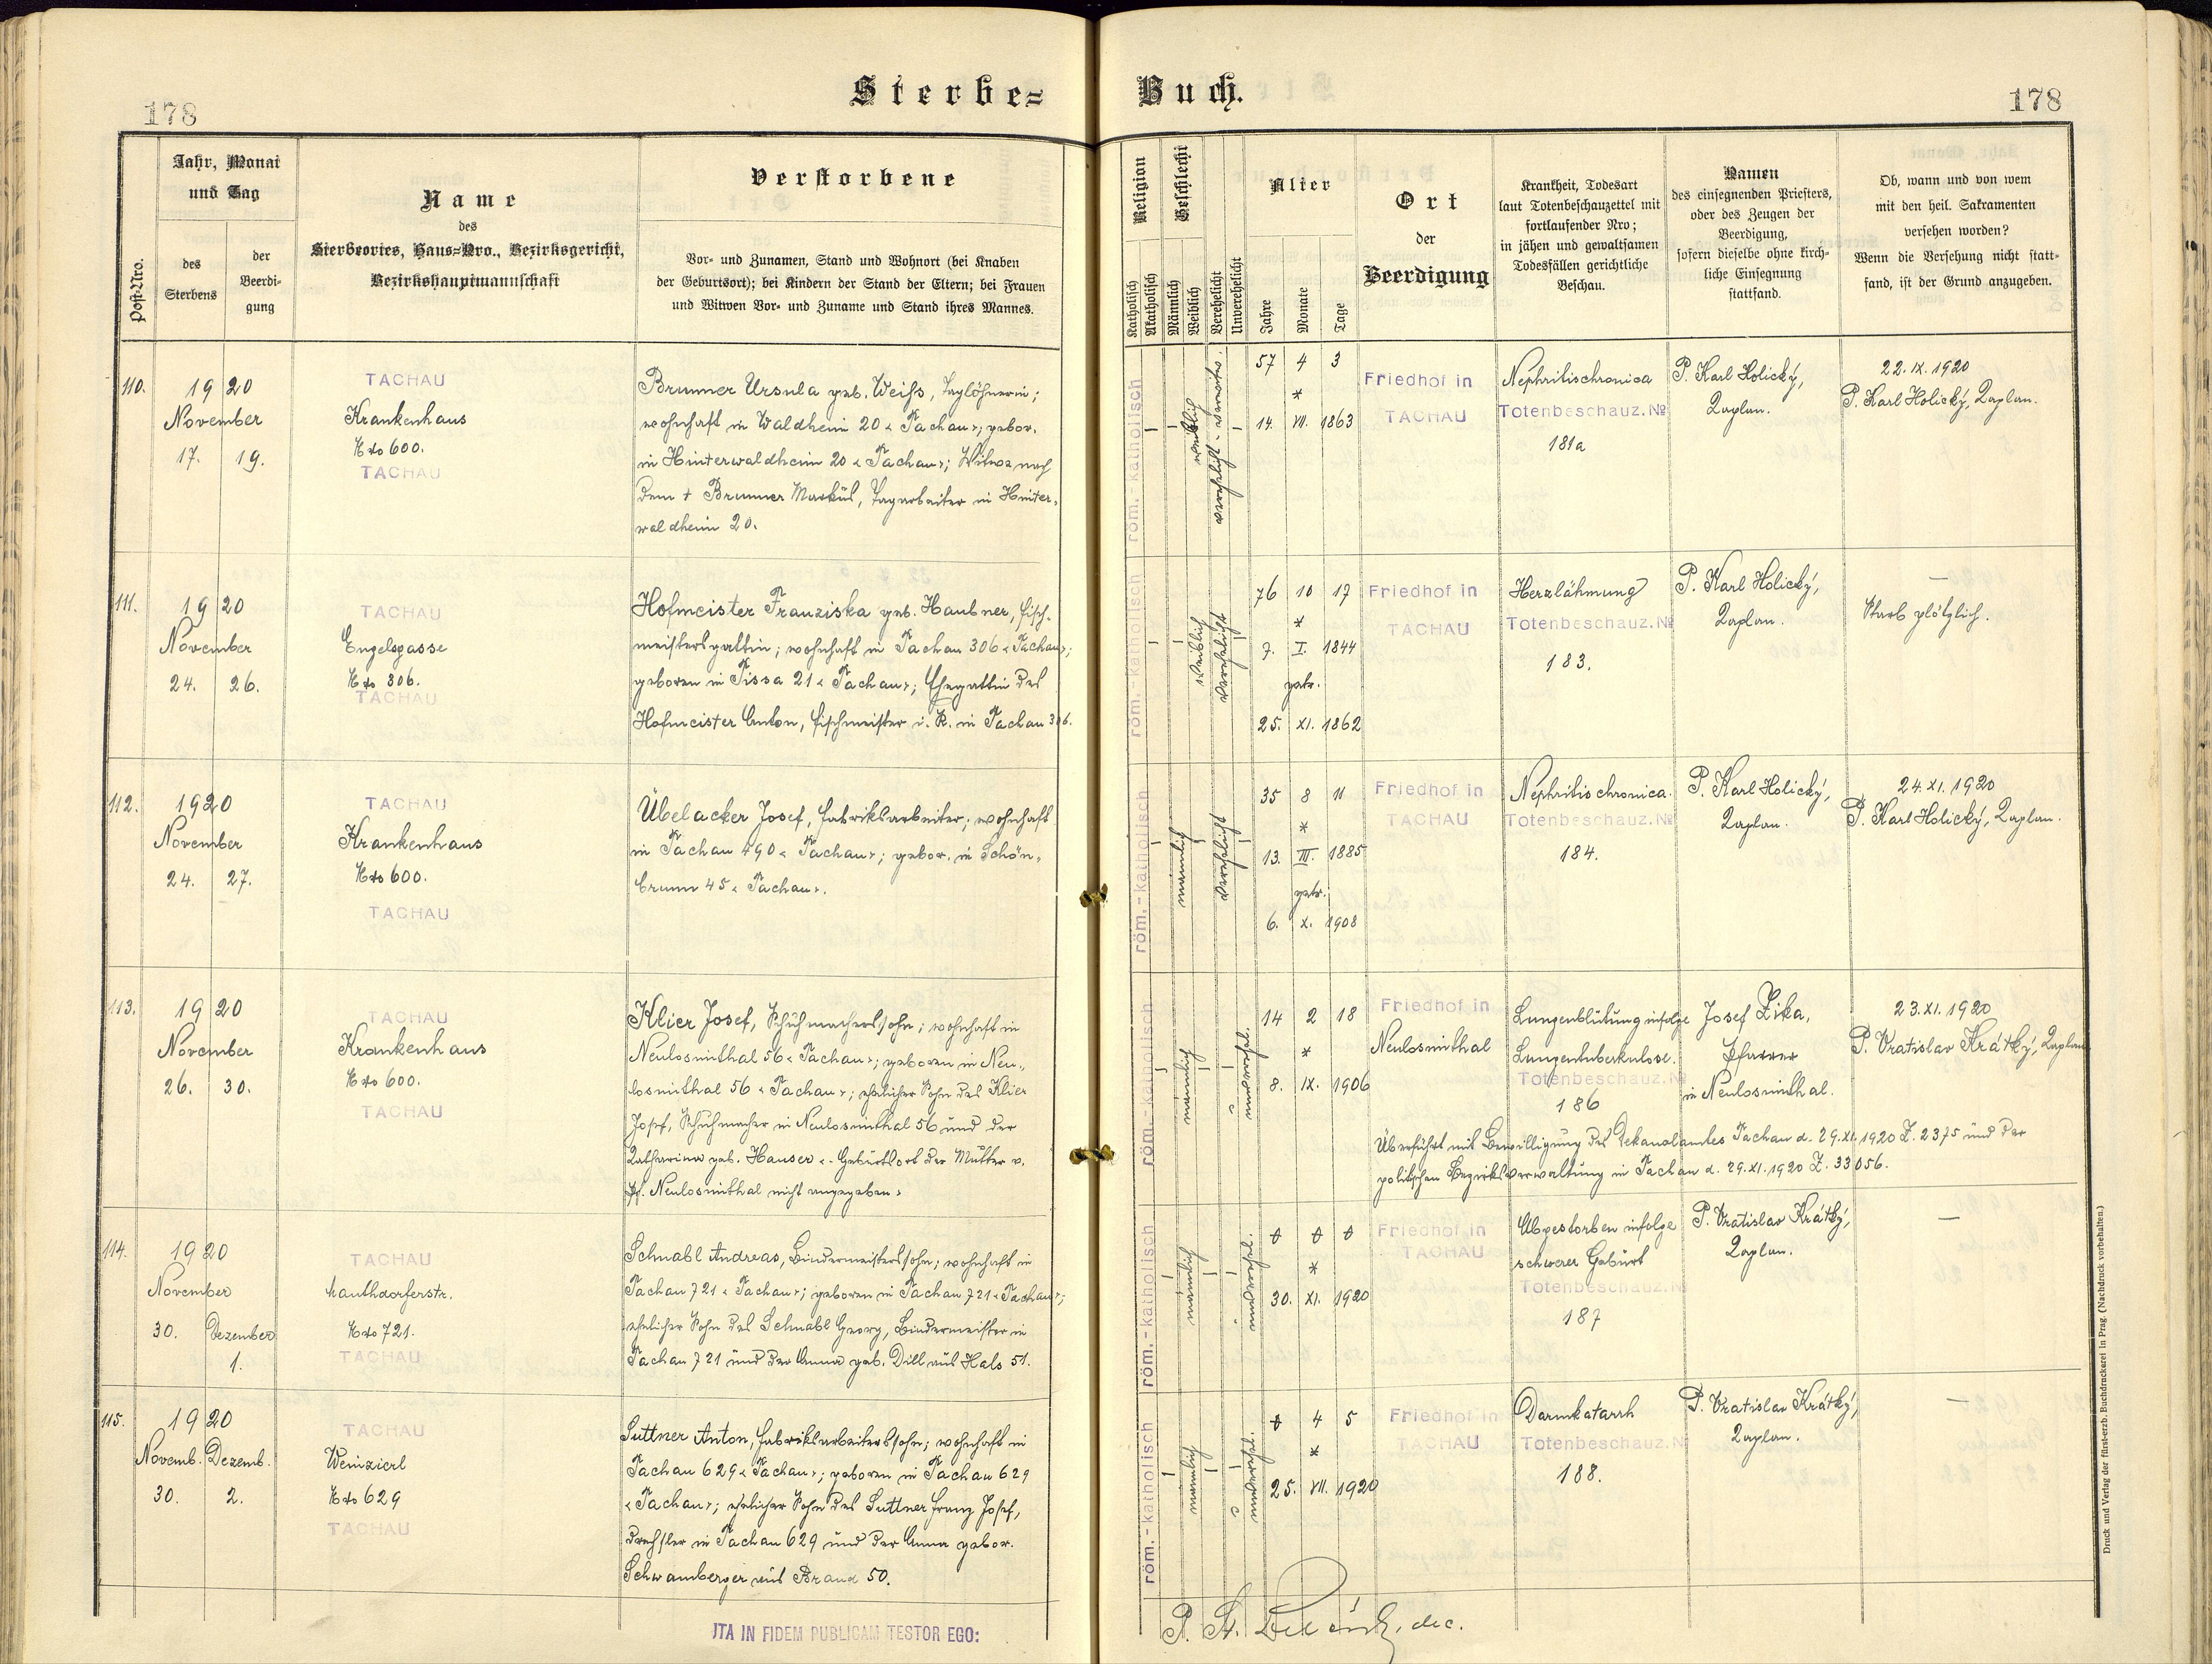 178
Sterbe=
Buch.
178
Post-Nro.
Jahr, Monat
und Tag
des
Sterbens
der
Beerdi-
gung
Name
des
Sterbeortes, Haus=Nro., Bezirksgericht,
Bezirkshauptmannschaft
Verstorbene
Vor- und Zunamen, Stand und Wohnort (bei Knaben
der Geburtsort); bei Kindern der Stand der Eltern; bei Frauen
und Witwen Vor- und Zuname und Stand ihres Mannes.
Religion
Katholisch
Akatholisch
Geschlecht
Männlich
Weiblich
Verehelicht
Unverehelicht
Alter
Jahre
Monate
Tage
Ort
der
Beerdigung
Krankheit, Todesart
laut Totenbeschauzettel mit
fortlaufender Nro;
in jähen und gewaltsamen
Todesfällen gerichtliche
Beschau.
Namen
des einsegnenden Priesters,
oder des Zeugen der
Beerdigung,
sofern dieselbe ohne kirch-
liche Einsegnung
stattfand.
Ob, wann und von wem
mit den heil. Sakramenten
versehen worden?
Wenn die Versehung nicht statt-
fand, ist der Grund anzugeben.
110.
1920
November
17. 19.
TACHAU
Krankenhaus
No 600.
TACHAU
Brunner Ursula geb. Weiß, Taglöhnerin;
wohnhaft in Waldheim 20 « Tachau»; gebor.
in Hinterwaldheim 20 « Tachau»; Witwe nach
dem † Brunner Markus, Tagarbeiter in Hinter-
waldheim 20.
röm.-katholisch
weiblich
verehelicht - verwitw.
57 4 3
*
14. VII. 1863
Friedhof in
TACHAU
Nephritis chronica
Totenbeschauz. No
181a
P. Karl Holický,
Kaplan.
22. IX. 1920
P. Karl Holický, Kaplan.
111.
1920
November
24. 26.
TACHAU
Engelgasse
No 306.
TACHAU
Hofmeister Franziska geb. Haubner, Fisch-
meistersgattin; wohnhaft in Tachau 306 « Tachau»;
geboren in Tissa 21 « Tachau»; Ehegattin des
Hofmeister Anton, Fischmeister i. R. in Tachau 306.
röm.-katholisch
weiblich
verehelicht
76 10 17
*
7. I. 1844
getr.
25. XI. 1862
Friedhof in
TACHAU
Herzlähmung
Totenbeschauz. No
183.
P. Karl Holický,
Kaplan.
—
Starb plötzlich.
112.
1920
November
24. 27.
TACHAU
Krankenhaus
No 600.
TACHAU
Übelacker Josef, Fabriksarbeiter; wohnhaft
in Tachau 490 « Tachau»; gebor. in Schön-
brunn 45 « Tachau».
röm.-katholisch
männlich
verehelicht
35 8 11
*
13. III. 1885
getr.
6. X. 1908
Friedhof in
TACHAU
Nephritis chronica.
Totenbeschauz. No
184.
P. Karl Holický,
Kaplan.
24. XI. 1920
P. Karl Holický, Kaplan.
113.
1920
November
26. 30.
TACHAU
Krankenhaus
No 600.
TACHAU
Klier Josef, Schuhmacherssohn; wohnhaft in
Neulosimthal 56 « Tachau»; geboren in Neu-
losimthal 56 « Tachau»; ehelicher Sohn des Klier
Josef, Schuhmacher in Neulosimthal 56 und der
Katharina geb. Hauser «- Geburtsort der Mutter v.
Pf. Neulosimthal nicht angegeben»
röm.-katholisch
männlich
unverehel.
14 2 18
*
8. IX. 1906
Friedhof in
Neulosimthal
Lungenblutung infolge
Lungentuberkulose.
Totenbeschauz. N
186
Josef Zika,
Pfarrer
in Neulosimthal.
23. XI. 1920
P. Vratislav Krátký, Kaplan
Überführt mit Bewilligung des Dekanalamtes Tachau d. 29. XI. 1920 Z. 2375 und der
politischen Bezirksverwaltung in Tachau d. 29. XI. 1920 Z. 33056.
114.
1920
November
30. Dezember
1.
TACHAU
Mauthdorferstr.
No 721.
TACHAU
Schnabl Andreas, Bindermeisterssohn; wohnhaft in
Tachau 721 « Tachau»; geboren in Tachau 721 « Tachau»;
ehelicher Sohn des Schnabl Georg, Bindermeister in
Tachau 721 und der Anna geb. Dill aus Hals 51.
röm.-katholisch
männlich
unverehel.
0 0 0
*
30. XI. 1920
Friedhof in
TACHAU
Abgestorben infolge
schwerer Geburt
Totenbeschauz. N
187
P. Vratislav Krátký,
Kaplan.
—
115.
1920
Novemb. Dezemb.
30. 2.
TACHAU
Weinzierl
No 629
TACHAU
Suttner Anton, Fabriksarbeiterssohn; wohnhaft in
Tachau 629 « Tachau»; geboren in Tachau 629
« Tachau»; ehelicher Sohn des Suttner Franz Josef,
Drechsler in Tachau 629 und der Anna gebor.
Schwamberger aus Brand 50.
röm.-katholisch
männlich
unverehel.
0 4 5
*
25. VII. 1920
Friedhof in
TACHAU
Darmkatarrh
Totenbeschauz. N
188.
P. Vratislav Krátký,
Kaplan.
—
ITA IN FIDEM PUBLICAM TESTOR EGO:
P. dec.
Druck und Verlag der fürst-erzb. Buchdruckerei in Prag. (Nachdruck vorbehalten.)